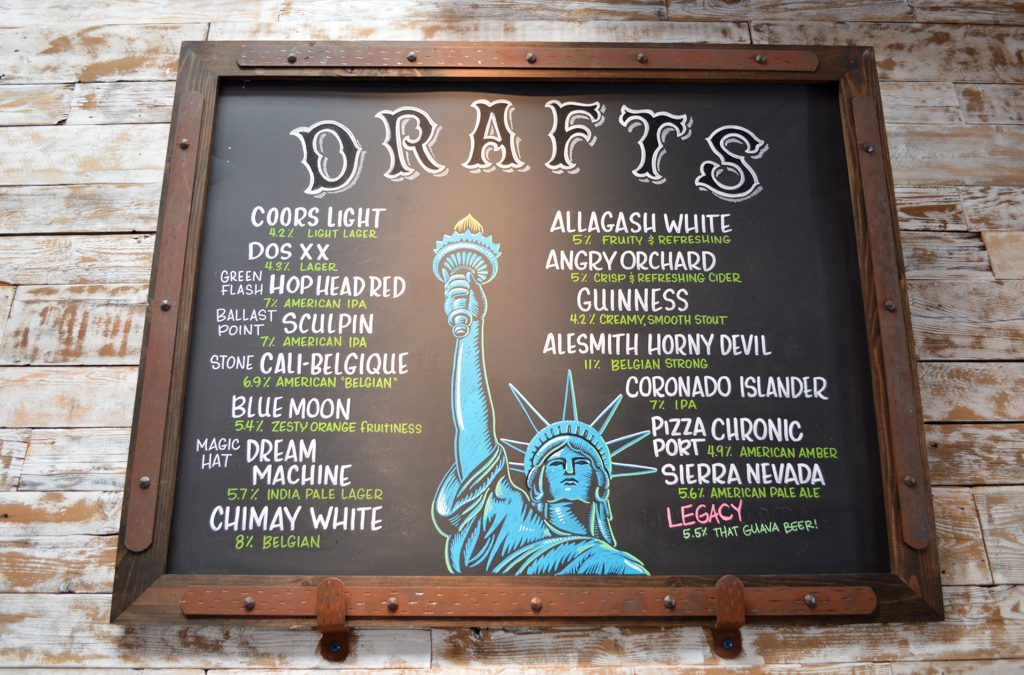 DRAFTS
COORS LIGHT
4.2% LIGHT LAGER
DOS XX
4.3% LAGER
GREEN FLASH HOP HEAD RED
7% AMERICAN IPA
BALLAST POINT SCULPIN
7% AMERICAN IPA
STONE CALI-BELGIQUE
6.9% AMERICAN "BELGIAN"
BLUE MOON
5.4% ZESTY ORANGE FRUITINESS
MAGIC HAT DREAM
MACHINE
5.7% INDIA PALE LAGER
CHIMAY WHITE
8% BELGIAN
ALLAGASH WHITE
5% FRUITY & REFRESHING
ANGRY ORCHARD
5% CRISP & REFRESHING CIDER
GUINNESS
4.2% CREAMY, SMOOTH STOUT
ALESMITH HORNY DEVIL
11% BELGIAN STRONG
CORONADO ISLANDER
7% IPA
PIZZA PORT CHRONIC
4.9% AMERICAN AMBER
SIERRA NEVADA
5.6% AMERICAN PALE ALE
LEGACY
5.5% THAT GUAVA BEER!